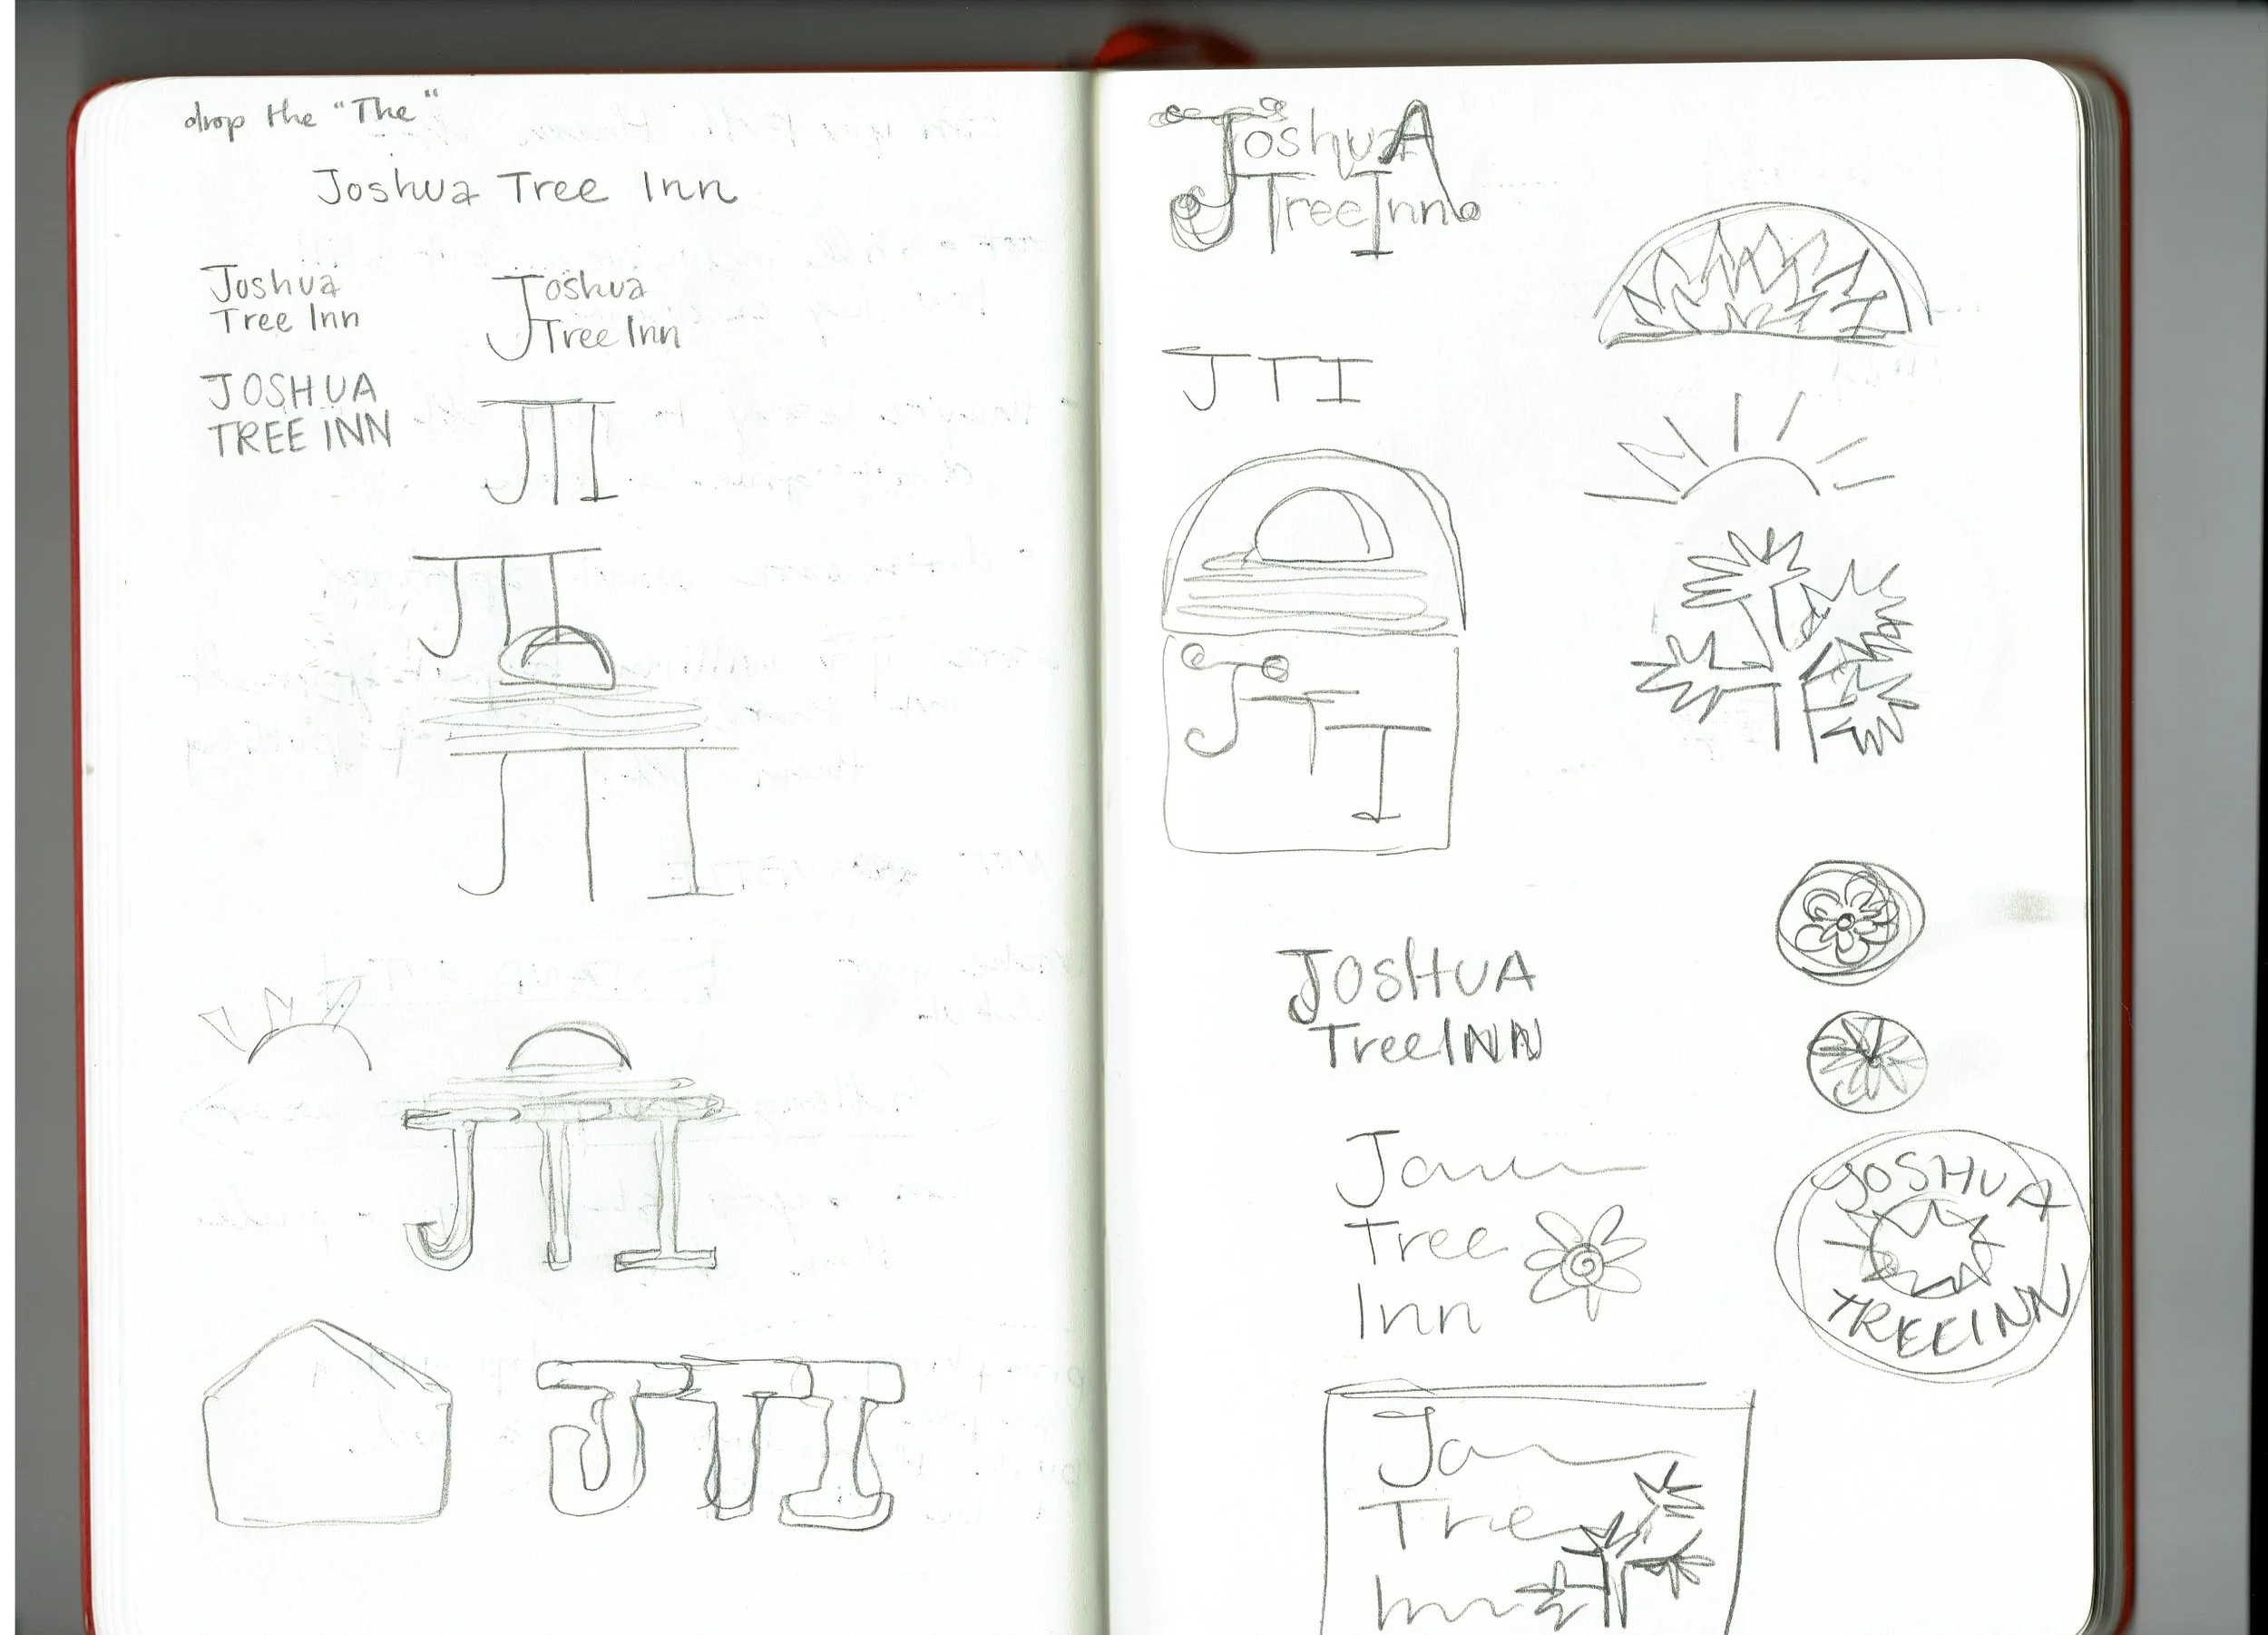 drop the "The"
Joshua Tree Inn
Joshua
Tree Inn
Joshua
Tree Inn
JOSHUA
TREE INN
JTI
JTI
JTI
JTI
JTI
JoshuA
TreeInn
JTI
JTI
JOSHUA
TreeINN
Tree
Inn
JOSHUA
TREEINN
Tree